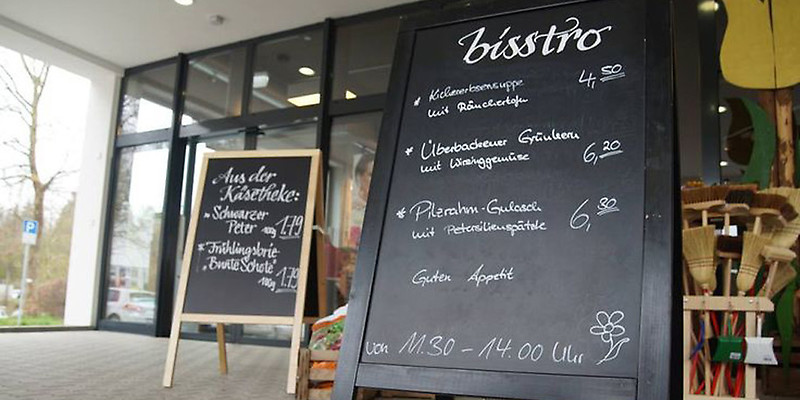 Aus der
Käsetheke:
Schwarzer
Peter 100g 1.79
Frühlingsbrie
"Bunte Schote"
100g 1.79
P
bisstro
* Kichererbsensuppe 4,50
mit Räuchertofu
* Überbackener Grünkern 6,20
mit Wirsinggemüse
* Pilzrahm-Gulasch 6,30
mit Petersilienspätzle
Guten Appetit
von 11.30 - 14.00 Uhr